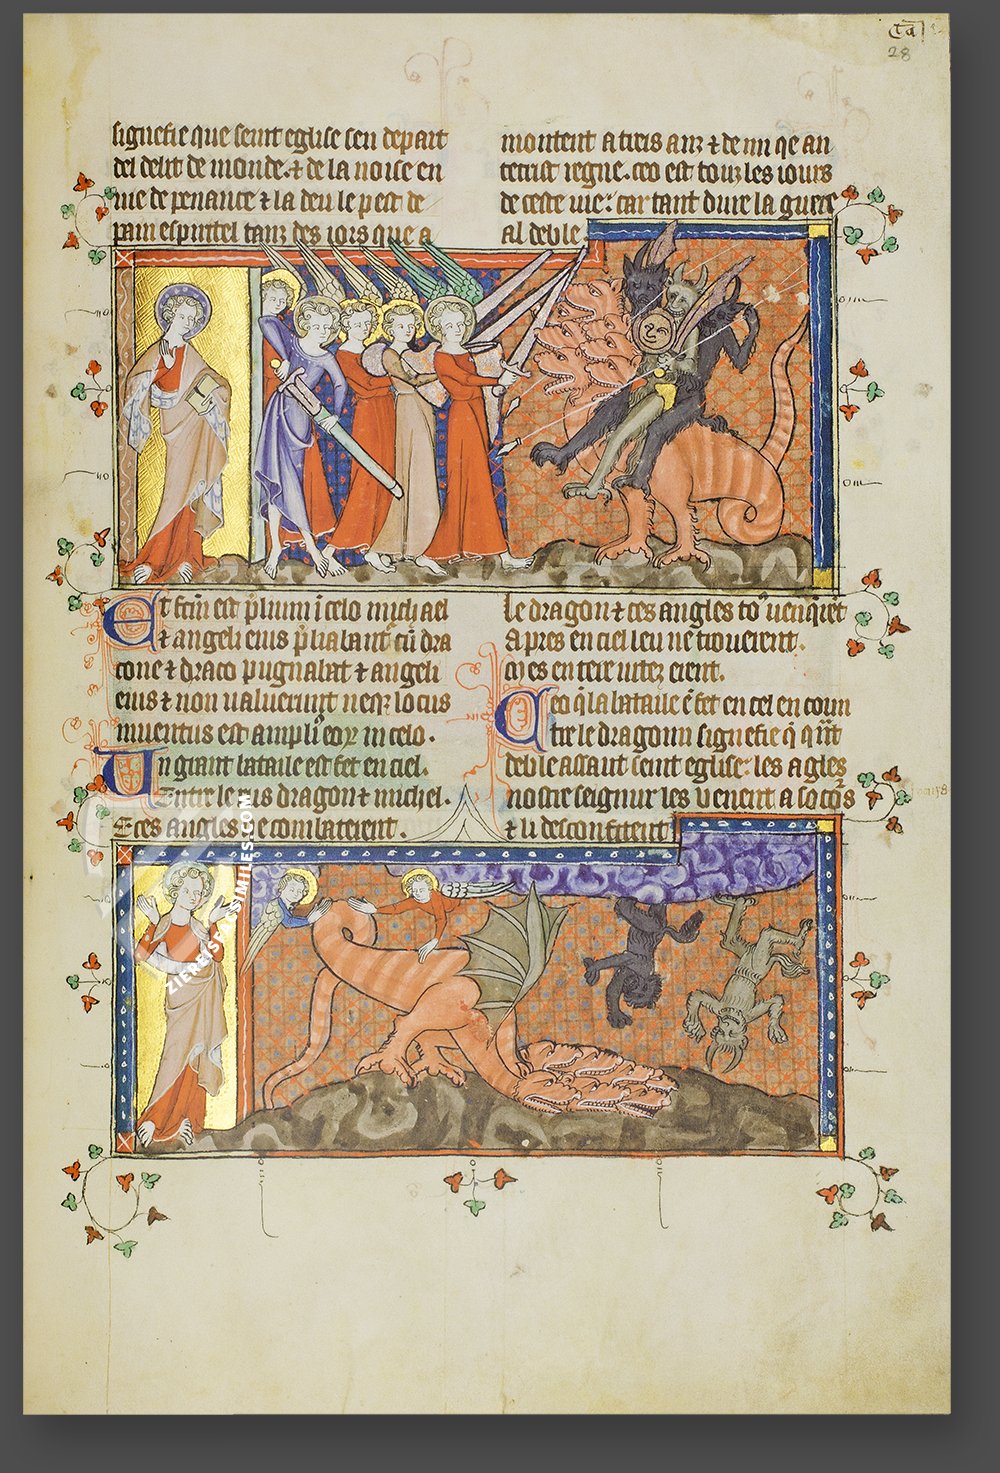 28
signefie que seint eglise sen depart
del delit de monde. ⁊ de la noise en
uie de penance ⁊ la deu le pest de
pain espiritel tanz des iors que a
montent a treis anz ⁊ de mi qe an
tecrist regne. ceo est touz les iours
de ceste uie: car tant dure la guere
al deble
Et fcm est plium i celo michael
⁊ angeli eius pliabant cu dra
cone ⁊ draco pugnabat ⁊ angeli
eius ⁊ non ualuerunt neqꝫ locus
inuentus est ampli eoꝝ in celo.
Un grant bataile est fet en ciel.
Entre le dragon ⁊ michel.
E ces angles ke combateient.
le dragon ⁊ ces angles uenquiret
Apres en ciel leu ne trouerent.
en tere erent.
Ceo q la bataile e fet en cel en coun
tre le dragoun signefie q qnt
deble assaut seint eglise: les agles
nostre seignur les uenent a socors
⁊ li desconfitent
ZIEREISFACSIMILES.COM